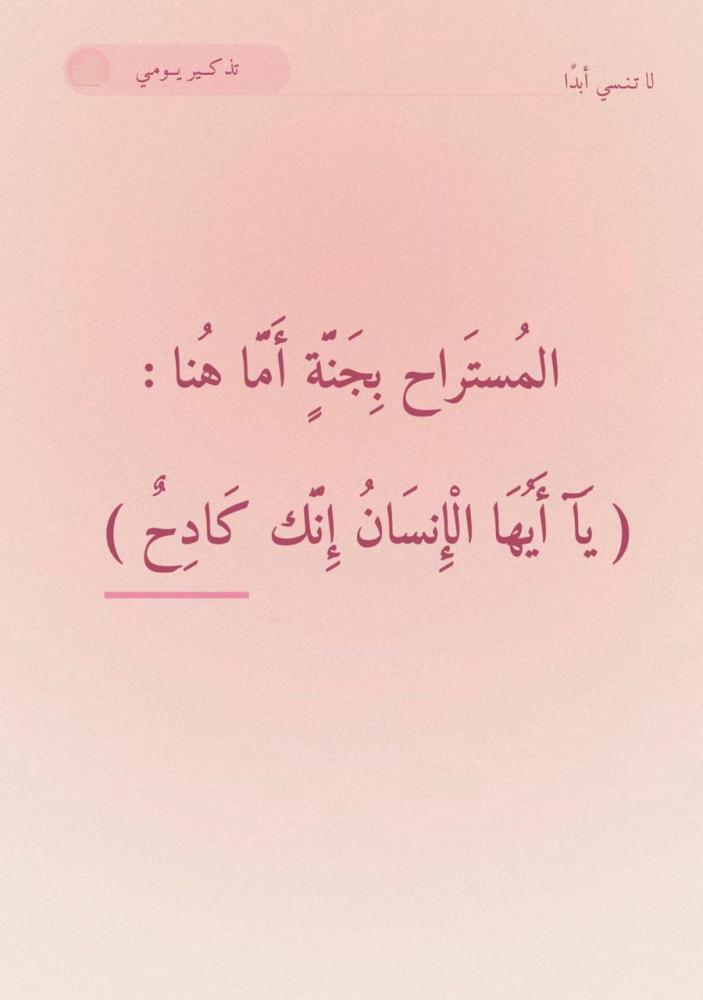 لا تنسي أبدًا
تذكير يومي
المُستَراح بِجَنّةٍ أَمّا هُنا :
( يَآ أَيُّهَا الْإِنسَانُ إِنّك كَادِحٌ )